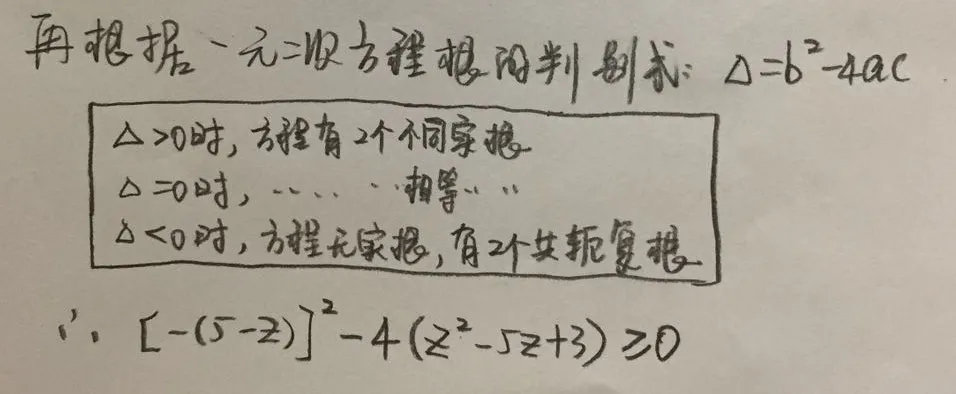 再根据一元二次方程根的判别式: △=b²-4ac
△>0时,方程有2个不同实根
△=0时, ‥‥‥相等‥‥
△<0时,方程无实根,有2个共轭复根
∴ [-(5-z)]²-4(z²-5z+3)≥0